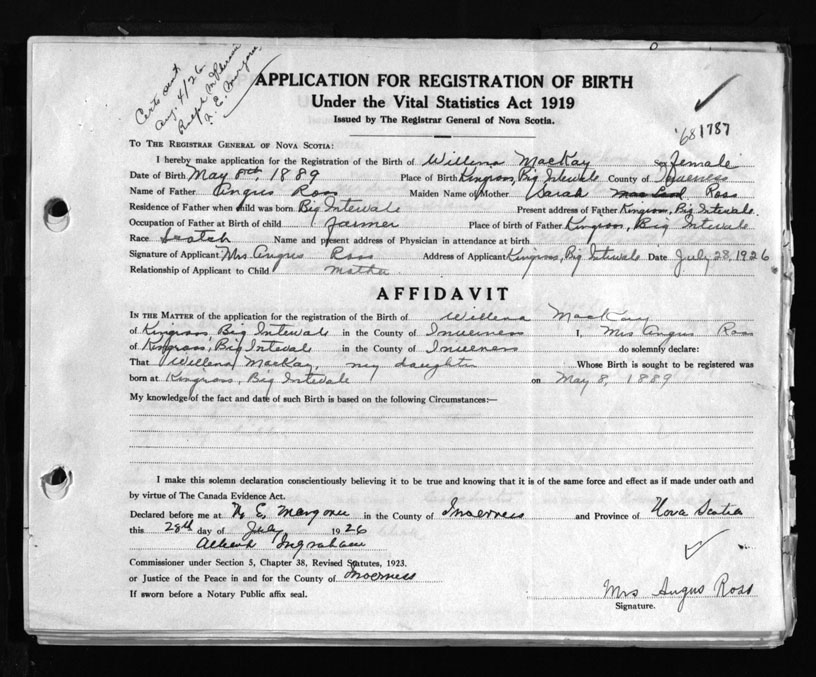 Certs sent
Aug. 4/26
N. E. Margaree
APPLICATION FOR REGISTRATION OF BIRTH
Under the Vital Statistics Act 1919
Issued by The Registrar General of Nova Scotia.
'681787
TO THE REGISTRAR GENERAL OF NOVA SCOTIA:
I hereby make application for the Registration of the Birth of Willena MacKay Sex female
Date of Birth May 8th, 1889 Place of Birth Kingross, Big Intevale County of Inverness
Name of Father Angus Ross Maiden Name of Mother Sarah Ross
Residence of Father when child was born Big Intevale Present address of Father Kingross, Big Intevale.
Occupation of Father at Birth of child Farmer Place of birth of Father Kingross, Big Intevale
Race Scotch Name and present address of Physician in attendance at birth
Signature of Applicant Mrs. Angus Ross Address of Applicant Kingross, Big Intevale Date July 28, 1926
Relationship of Applicant to Child Mother
AFFIDAVIT
IN THE MATTER of the application for the registration of the Birth of Willena MacKay
of Kingross Big Intervale in the County of Inverness I, Mrs Angus Ross
of Kingross, Big Inteval in the County of Inverness do solemnly declare:
That Willena MacKay, my daughter Whose Birth is sought to be registered was
born at Kingross, Big Intevale on May 8, 1889
My knowledge of the fact and date of such Birth is based on the following Circumstances:—
I make this solemn declaration conscientiously believing it to be true and knowing that it is of the same force and effect as if made under oath and
by virtue of The Canada Evidence Act.
Declared before me at N. E. Margaree in the County of Inverness and Province of Nova Scotia
this 28th day of July 1926
Albert Ingraham
Commissioner under Section 5, Chapter 38, Revised Statutes, 1923.
or Justice of the Peace in and for the County of Inverness
If sworn before a Notary Public affix seal.
Mrs Angus Ross
Signature.